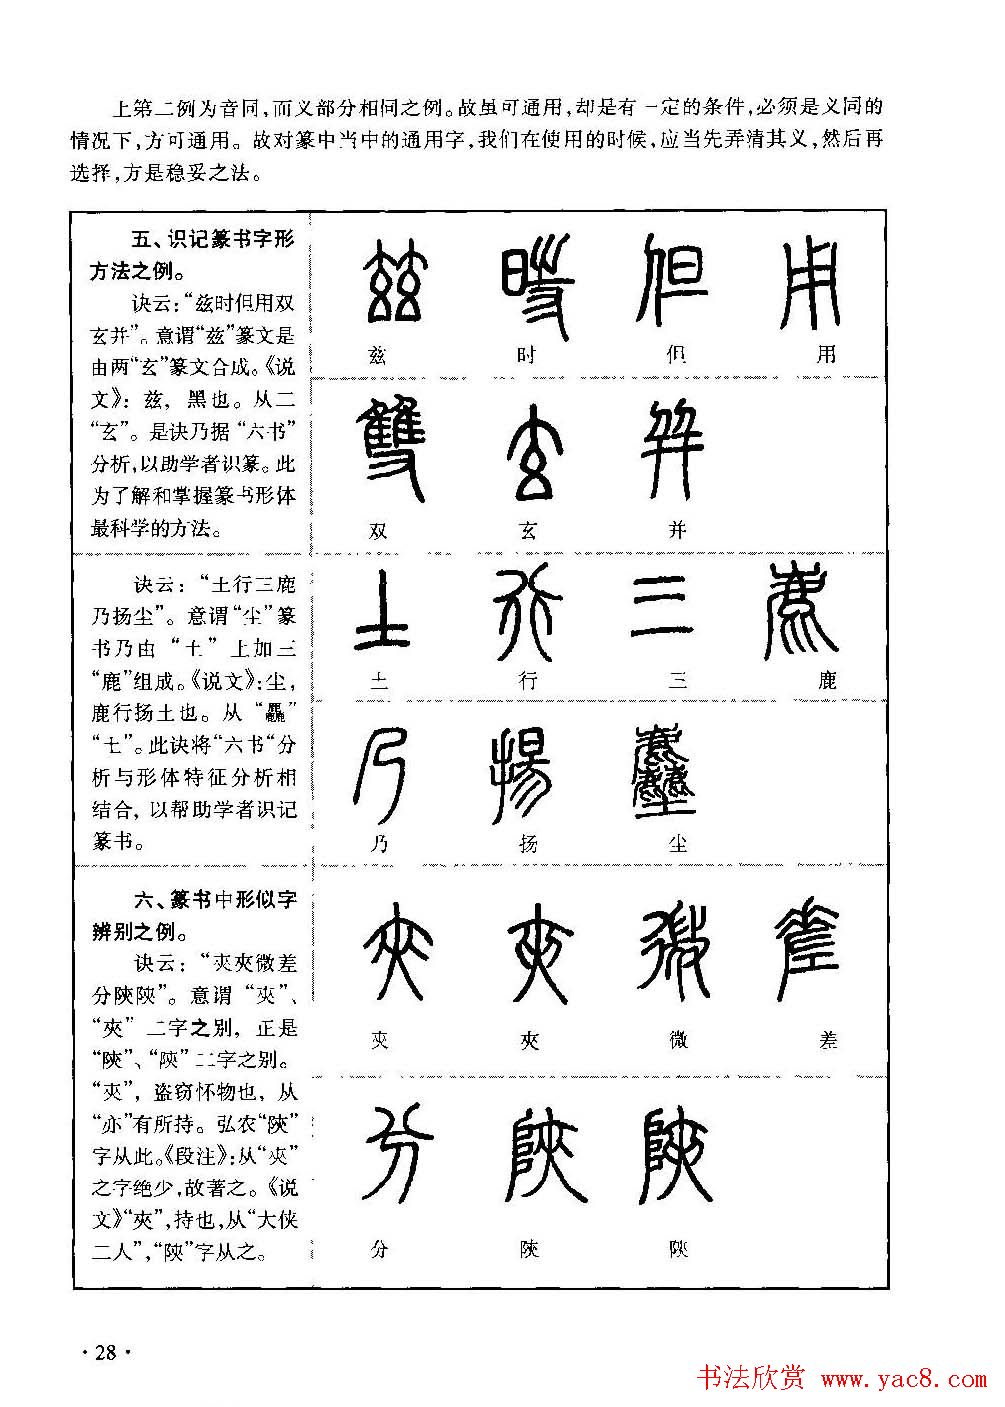 上第二例为音同,而义部分相同之例。故虽可通用,却是有一定的条件,必须是义同的
情况下,方可通用。故对篆中当中的通用字,我们在使用的时候,应当先弄清其义,然后再
选择,方是稳妥之法。
五、识记篆书字形
方法之例。
诀云:“兹时但用双
玄并”。意谓“兹”篆文是
由两“玄”篆文合成。《说
文》:兹，黑也。从二
“玄”。是诀乃据“六书”
分析,以助学者识篆。此
为了解和掌握篆书形体
最科学的方法。
兹 时 但 用
双 玄 并
诀云:“土行三鹿
乃扬尘”。意谓“尘”篆
书乃由“土”上加三
“鹿”组成。《说文》:尘,
鹿行扬土也。从“麤”
“土”。此诀将“六书“分
析与形体特征分析相
结合,以帮助学者识记
篆书。
土 行 三 鹿
乃 扬 尘
六、篆书中形似字
辨别之例。
诀云:“夾夾微差
分陝陝”。意谓“夾”、
“夾”二字之别,正是
“陝”、“陝”二字之别。
“夾”,盗窃怀物也,从
“亦”有所持。弘农“陝”
字从此。《段注》:从“夾”
之字绝少,故著之。《说
文》“夾”,持也,从“大侠
二人”,“陝”字从之。
夾 夾 微 差
分 陝 陝
·28·
书法欣赏 www.yac8.com